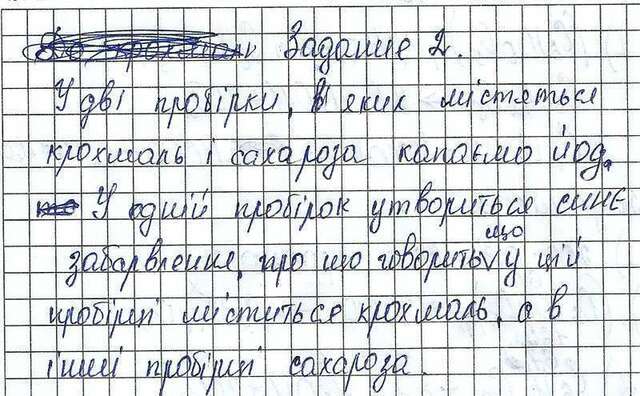 Задание 2.
У дві пробірки, в яких містяться
крохмаль і сахароза капаємо йод.
У одній пробірок утвориться синє
забарвлення, про що говорить що у цій
пробірці міститься крохмаль, а в
іншій пробірці сахароза.